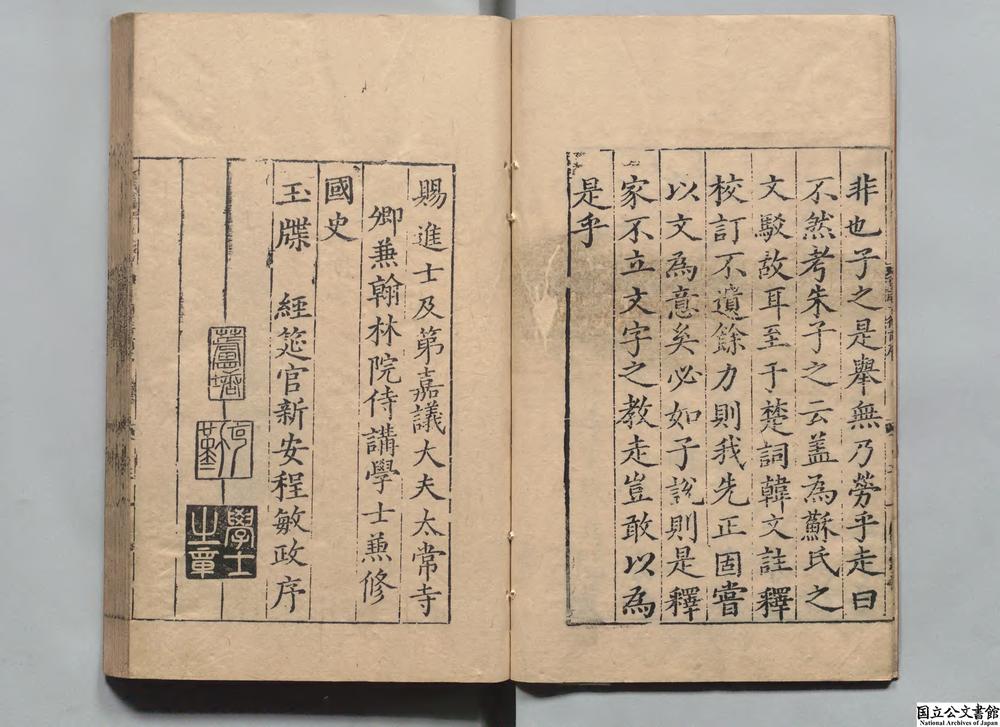 非也子之是舉無乃勞乎走曰
不然考朱子之云盖為蘇氏之
文駁故耳至于楚詞韓文註釋
校訂不遺餘力則我先正固嘗
以文為意矣必如子說則是釋
家不立文字之教走豈敢以為
是乎
賜進士及第嘉議大夫太常寺
卿兼翰林院侍講學士兼修
國史
玉牒 經筵官新安程敏政序
學士之章
国立公文書館
National Archives of Japan